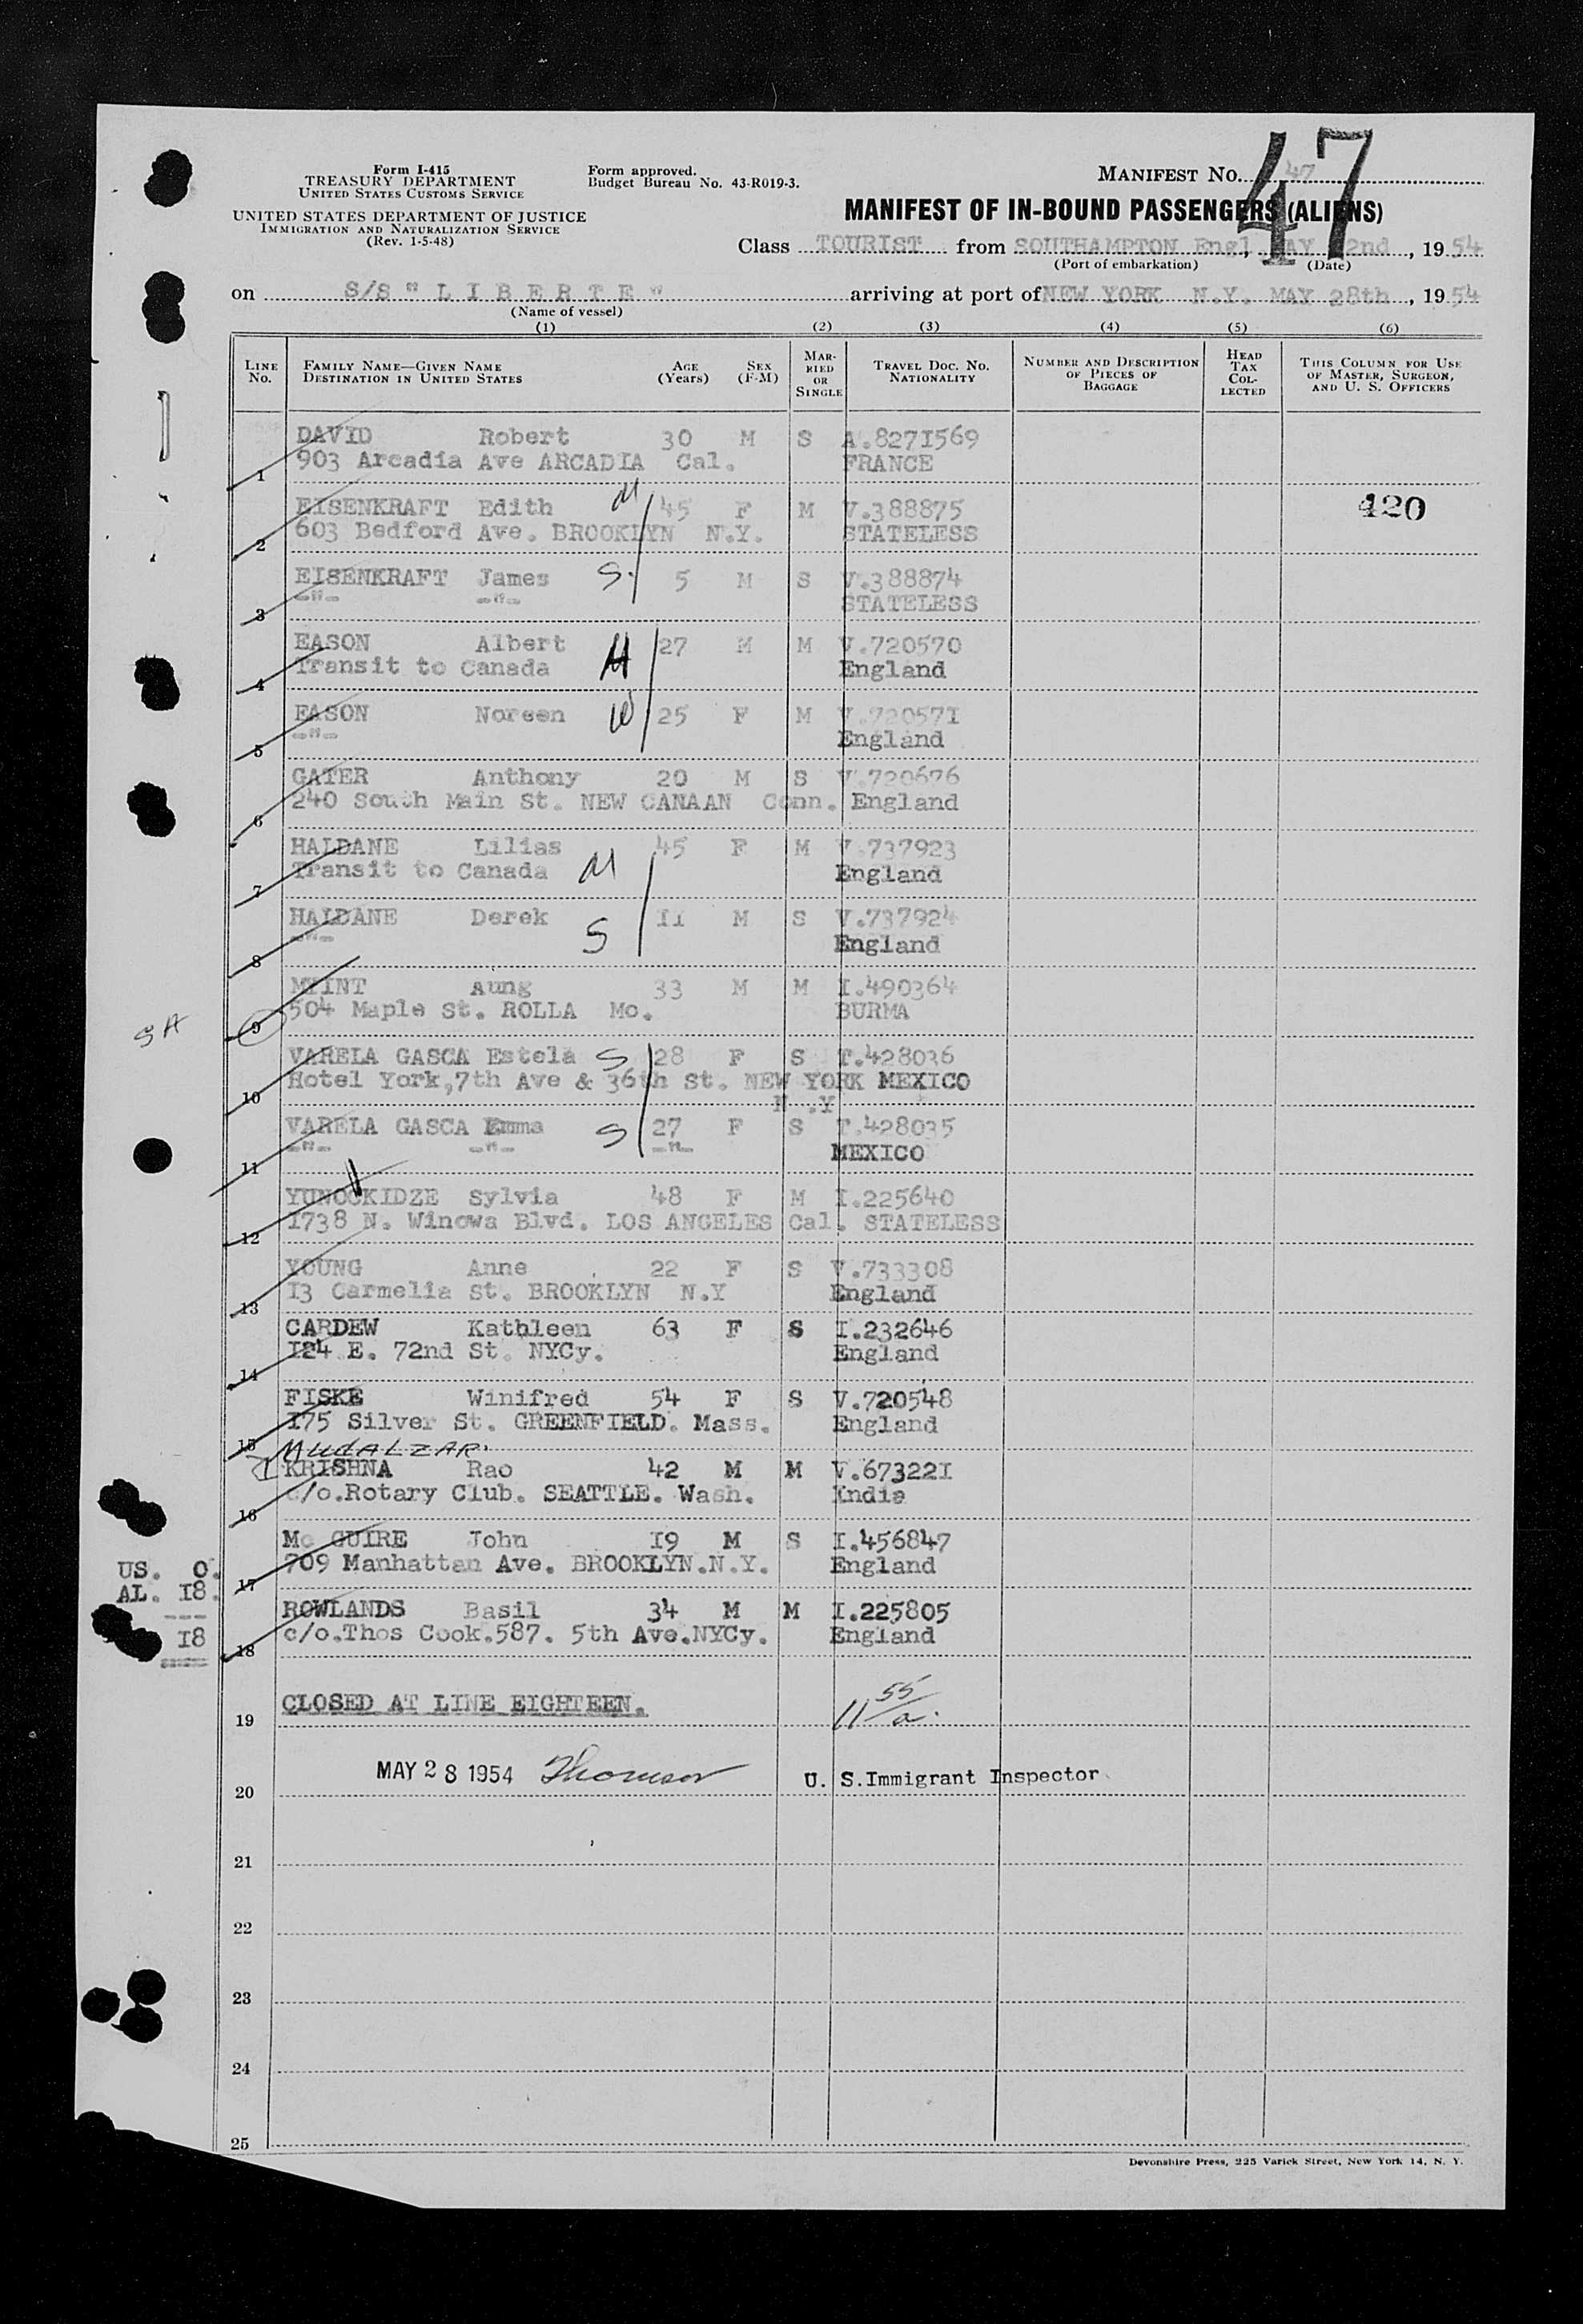 47
Form I-415
TREASURY DEPARTMENT
UNITED STATES CUSTOMS SERVICE
UNITED STATES DEPARTMENT OF JUSTICE
IMMIGRATION AND NATURALIZATION SERVICE
(Rev. 1-5-48)
Form approved.
Budget Bureau No. 43-R019-3.
MANIFEST NO. 47
MANIFEST OF IN-BOUND PASSENGERS (ALIENS)
Class TOURIST from SOUTHAMPTON Engl, MAY 22nd, 1954
(Port of embarkation) (Date)
on S/S " L I B E R T E " arriving at port of NEW YORK N.Y. MAY 28th, 1954
(Name of vessel)
(1) (2) (3) (4) (5) (6)
LINE No. FAMILY NAME—GIVEN NAME DESTINATION IN UNITED STATES AGE (Years) SEX (F-M) MARRIED OR SINGLE TRAVEL DOC. NO. NATIONALITY NUMBER AND DESCRIPTION OF PIECES OF BAGGAGE HEAD TAX COLLECTED THIS COLUMN FOR USE OF MASTER, SURGEON, AND U. S. OFFICERS
DAVID Robert 30 M S A.8271569
1 903 Arcadia Ave ARCADIA Cal. FRANCE
EISENKRAFT Edith M 45 F M V.388875 420
2 603 Bedford Ave. BROOKLYN N.Y. STATELESS
EISENKRAFT James S. 5 M S V.388874
3 -"- -"- STATELESS
EASON Albert H 27 M M V.720570
4 Transit to Canada England
EASON Noreen W 25 F M V.720571
5 -"- England
GATER Anthony 20 M S V.720676
6 240 South Main St. NEW CANAAN Conn. England
HALDANE Lilias 45 F M V.737923
7 Transit to Canada M England
HALDANE Derek S 11 M S V.737924
8 -"- England
MYINT Aung 33 M M I.490364
SA 9 504 Maple St. ROLLA Mo. BURMA
VARELA GASCA Estela S 28 F S T.428036
10 Hotel York,7th Ave & 36th St. NEW YORK MEXICO
N.Y
VARELA GASCA Emma S 27 F S T.428035
11 -"- -"- -"- MEXICO
YUNOCKIDZE Sylvia 48 F M I.225640
12 1738 N. Winowa Blvd. LOS ANGELES Cal. STATELESS
YOUNG Anne 22 F S V.733308
13 13 Carmelia St. BROOKLYN N.Y England
CARDEW Kathleen 63 F S I.232646
14 124 E. 72nd St. NYCy. England
FISKE Winifred 54 F S V.720548
15 175 Silver St. GREENFIELD. Mass. England
MUDALZAR
KRISHNA Rao 42 M M V.673221
16 c/o.Rotary Club. SEATTLE. Wash. India
Mc GUIRE John 19 M S I.456847
17 709 Manhattan Ave. BROOKLYN.N.Y. England
US. 0.
AL. 18.
---
18
ROWLANDS Basil 34 M M I.225805
18 c/o.Thos Cook.587. 5th Ave.NYCy. England
19 CLOSED AT LINE EIGHTEEN. 11 55/a.
20 MAY 28 1954 Thomson U. S.Immigrant Inspector
21
22
23
24
25
Devonshire Press, 225 Varick Street, New York 14, N. Y.